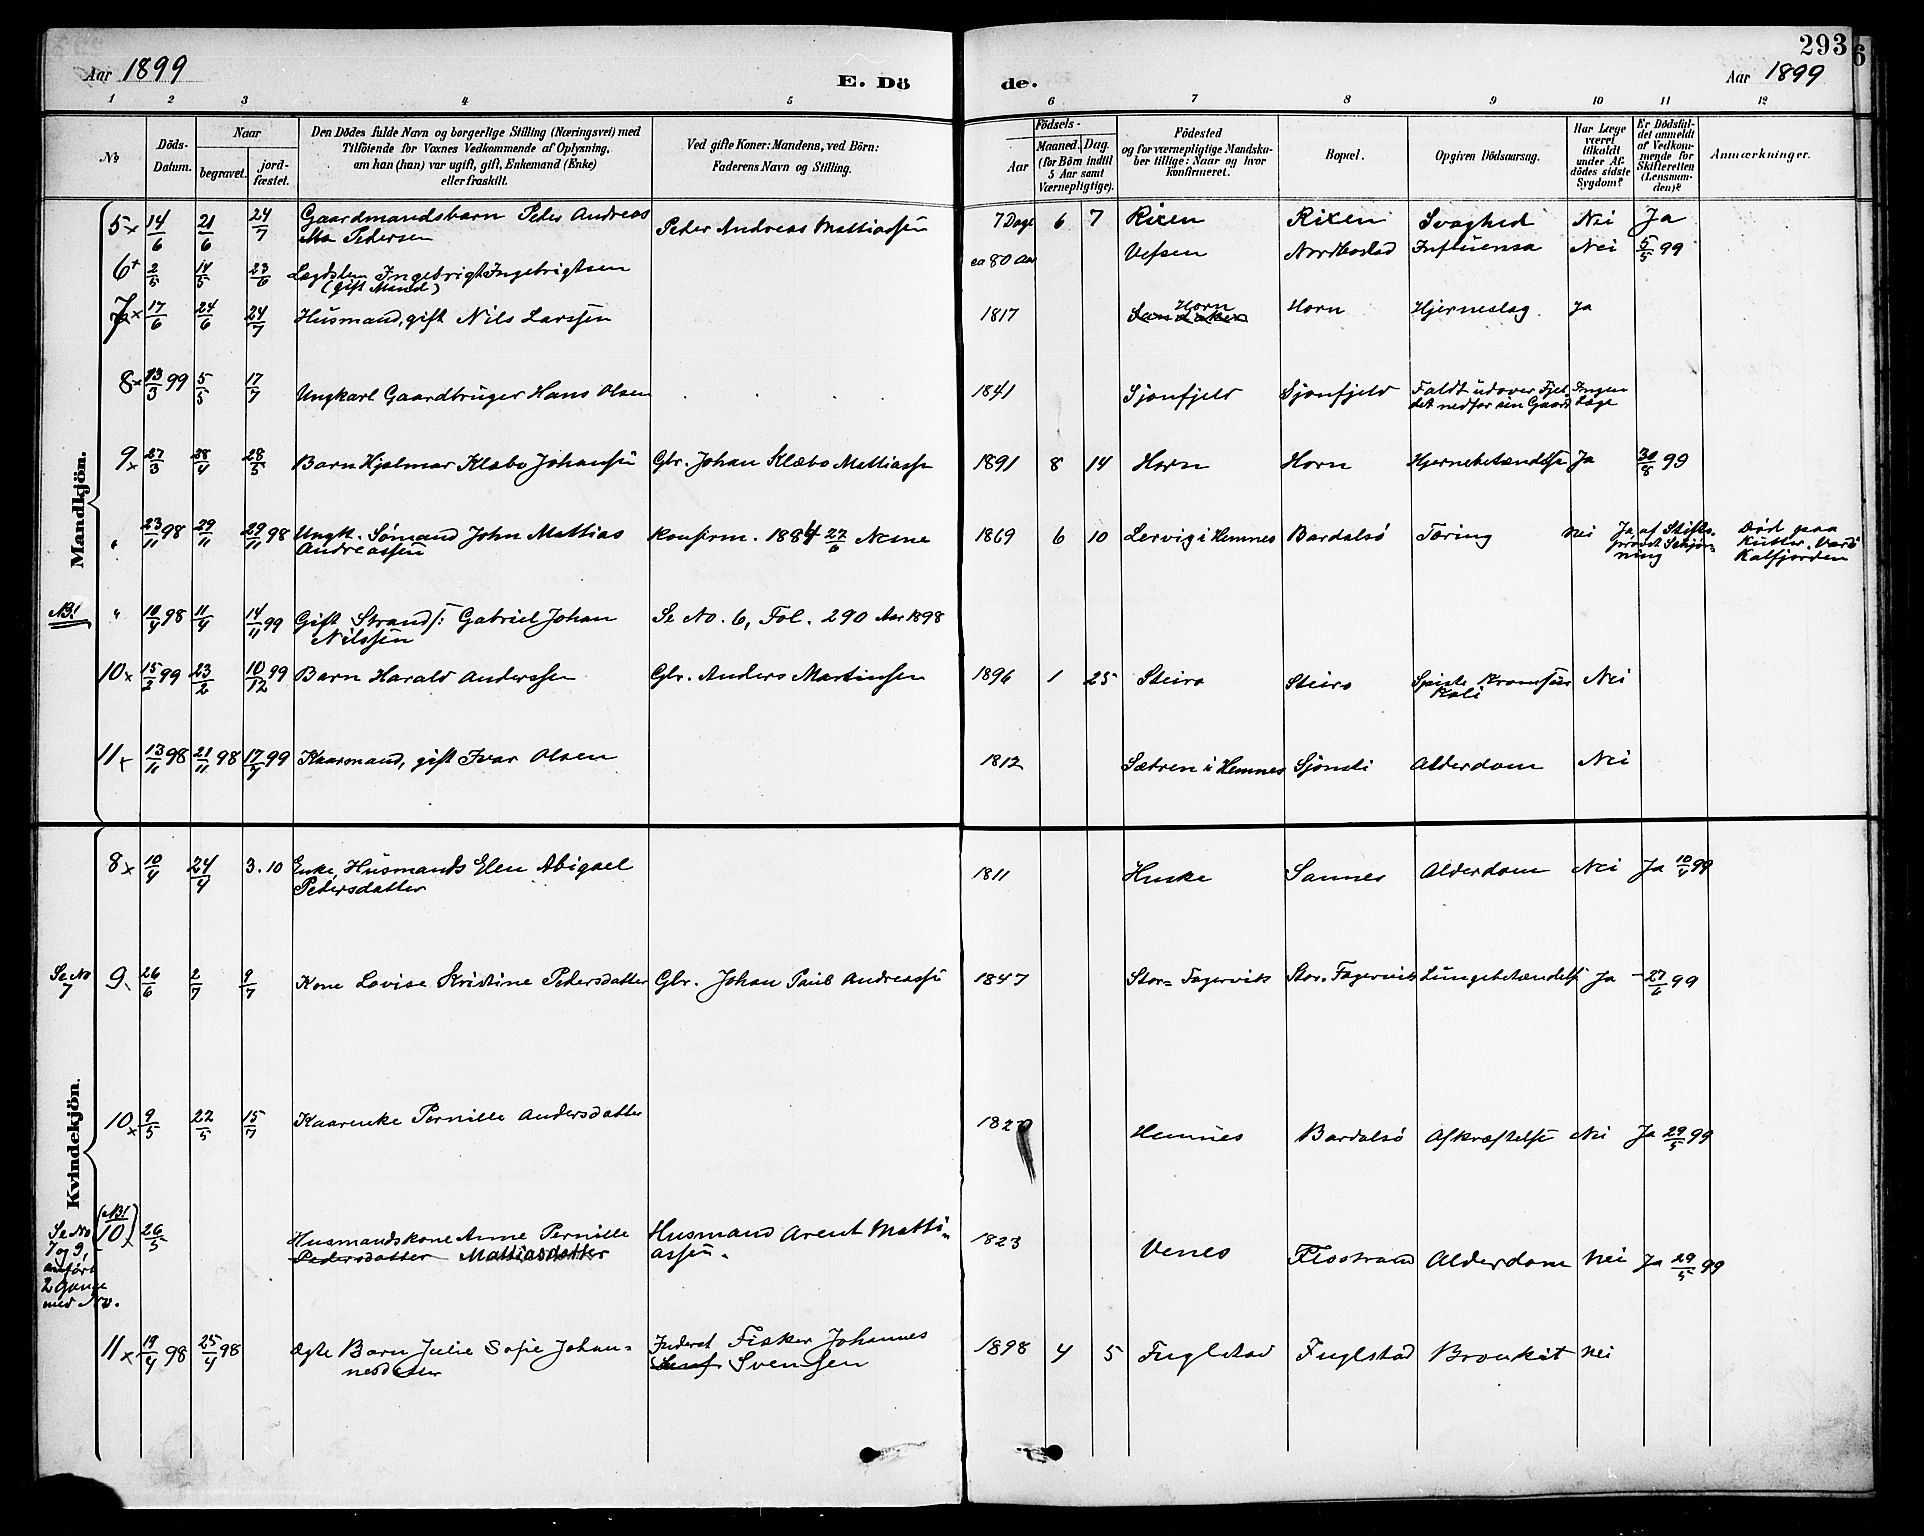 293
Aar 1899 E. Dö de. Aar 1899
1 2 3 4 5 6 7 8 9 10 11 12
No
Döds-Datum.
Naar
begravet.
jord-fæstet.
Den Dödes fulde Navn og borgerlige Stilling (Næringsvei) med
Tilföiende for Voxnes Vedkommende af Oplysning,
om han (hun) var ugift, gift, Enkemand (Enke)
eller fraskilt.
Ved gifte Koner: Mandens, ved Börn:
Faderens Navn og Stilling.
Födsels-
Aar
Maaned. Dag.
(for Börn indtil
5 Aar samt
Værnepligtige).
Födested
og for værnepligtige Mandska-
ber tillige: Naar og hvor
konfirmeret.
Bopæl.
Opgiven Dödsaarsag.
Har Læge
været
tilkaldt
under Af-
dödes sidste
Sygdom?
Er Dödsfal-
det anmeldt
af Vedkom-
mende for
Skifteretten
(Lensman-
den)?
Anmærkninger.
Mandkjön.
5 x 14/6 21/6 24/7 Gaardmandsbarn Peder Andreas Peder Andreas Mattiassen 7 Dage 6 7 Rixen Rixen Svaghed Nei Ja
Pedersen
6 + 2/5 14/5 23/6 Lægdslem Ingebrigt Ingebrigtsen ca 80 Aar Vefsen Influensa Nei 5/5 99
(gift Mand)
7 x 17/6 24/6 24/7 Husmand, gift Nils Larssen 1817 Horn Horn Hjerneslag Ja
8 x 13/3 99 5/5 17/7 Ungkarl Gaardbruger Hans Olsen 1841 Sjonfjeld Sjonfjeld Faldt udover Fjel- Ingen
det nedfor sin Gaard Læge
9 x 27/3 28/4 28/5 Barn Hjalmar Klæbo Johansen Gbr. Johan Klæbo Mattiassen 1891 8 14 Horn Horn Hjernebetændelse Ja 30/8 99
" 23/11 98 29/11 29/11 98 Ungk. Sømand John Mattias Konfirm. 1884 22/6 Nesne 1869 6 10 Lervig i Hemnes Bardalsö Tæring Nei Ja, af Stifts- Död paa
Andreassen provst Kutter
ning Kalfjorden
NB! " 10/4 98 11/4 14/11 99 Gift Strands: Gabriel Johan Se No. 6, Fol. 290 Aar 1898
Nilssen
10 x 15/2 99 23/2 10/12 99 Barn Harald Anderssen Gbr. Anders Martinsen 1896 1 25 Steiro Steiro Spiste Kromsur Nei
Kali
11 x 13/11 98 21/11 98 17/7 99 Kaarmand, gift Ivar Olsen 1812 Sætren i Hemnes Sjonsli Alderdom Nei
Kvindekjön.
8 x 10/4 24/4 3.10 Enke, Husmands Elen Abigael 1811 Huske Sannes Alderdom Nei Ja 10/4 99
Pedersdatter
Se No 7 9 26/6 2/7 9/7 Kone Lovise Kristine Pedersdatter Gbr. Johan Paul Andreassen 1847 Stor-Fagervik Stor-Fagervik Lungebetændelse Ja 27/6 99
10 x 9/5 22/5 15/7 Kaarenke Pernille Andersdatter Hemnes Bardalsö Afkræftelse Nei Ja 29/5 99
Se No 7 og 9, anført 2 Gange med No.
(NB! 10) 26/5 Husmandskone Anne Pernille Husmand Arent Matti- 1823 Venes Flostrand Alderdom Nei Ja 29/5 99
Pedersdatter Mattiasdatter assen.
11 x 19/4 98 25/4 98 Ægte Barn Julie Sofie Johan- Inderst Fisker Johannes 1898 4 5 Fuglstad Fuglstad Bronkit Nei
nesdatter Svensen